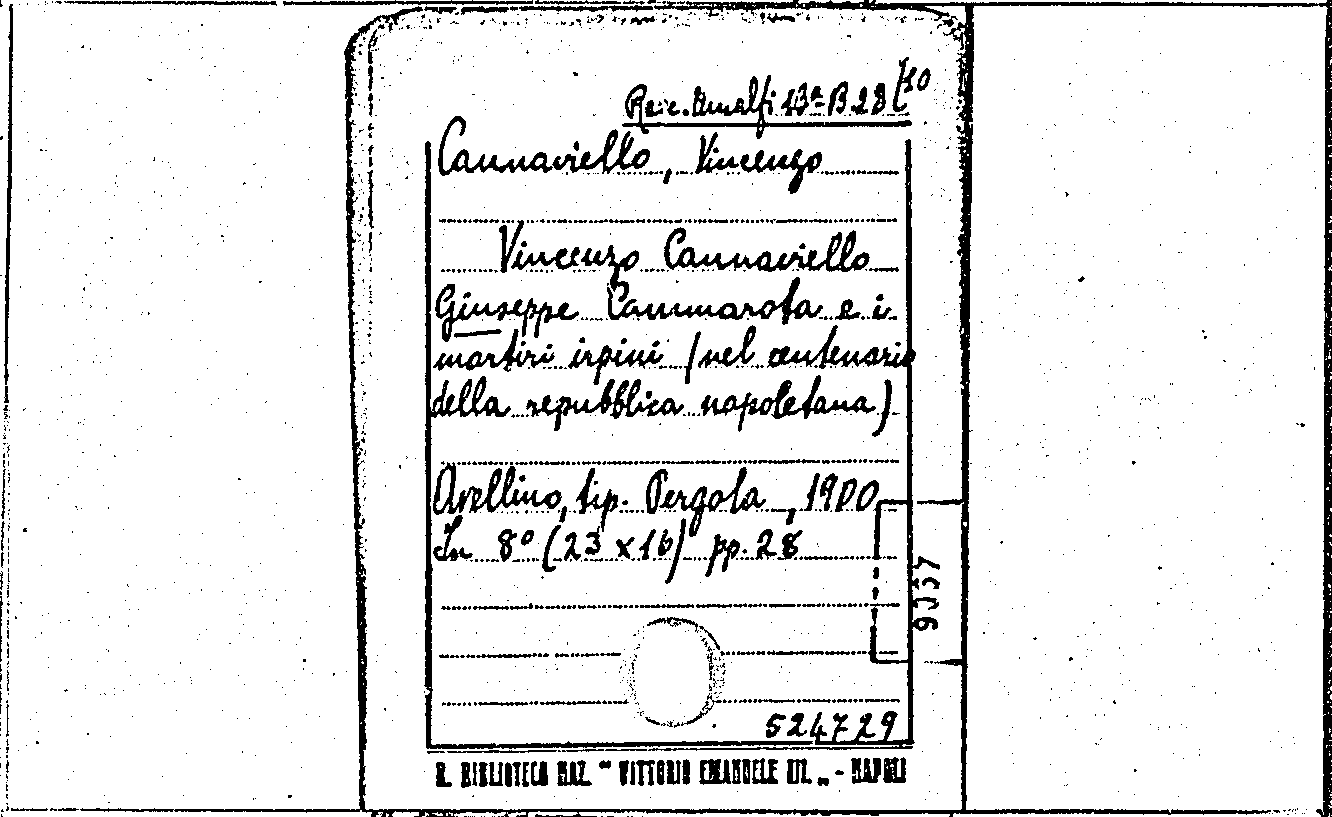 Racc. Amalfi 13ª B 28 (10
Cannaviello, Vincenzo
Vincenzo Cannaviello
Giuseppe Cammarota e i
martiri irpini (nel centenario
della repubblica napoletana)
Avellino, tip. Pergola, 1900
In 8° (23 x 16) pp. 28
9057
524729
R. BIBLIOTECA NAZ. “ VITTORIO EMANUELE III. „ - NAPOLI